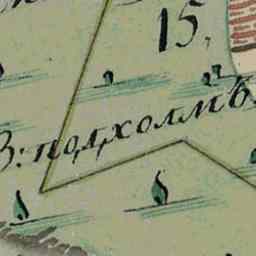 15,
В: подхолмѣ.